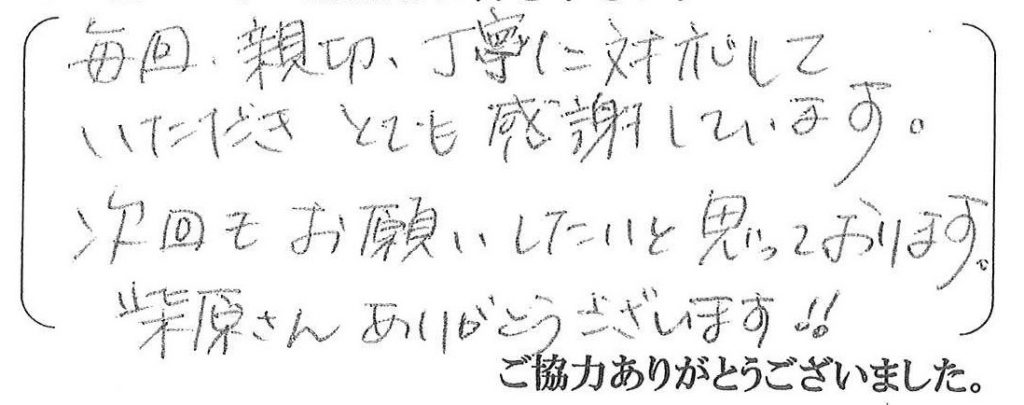 毎回、親切、丁寧に対応して
いただき とても 感謝しています。
次回も お願いしたいと 思っております。
柴原さん ありがとうございます!!
ご協力ありがとうございました。